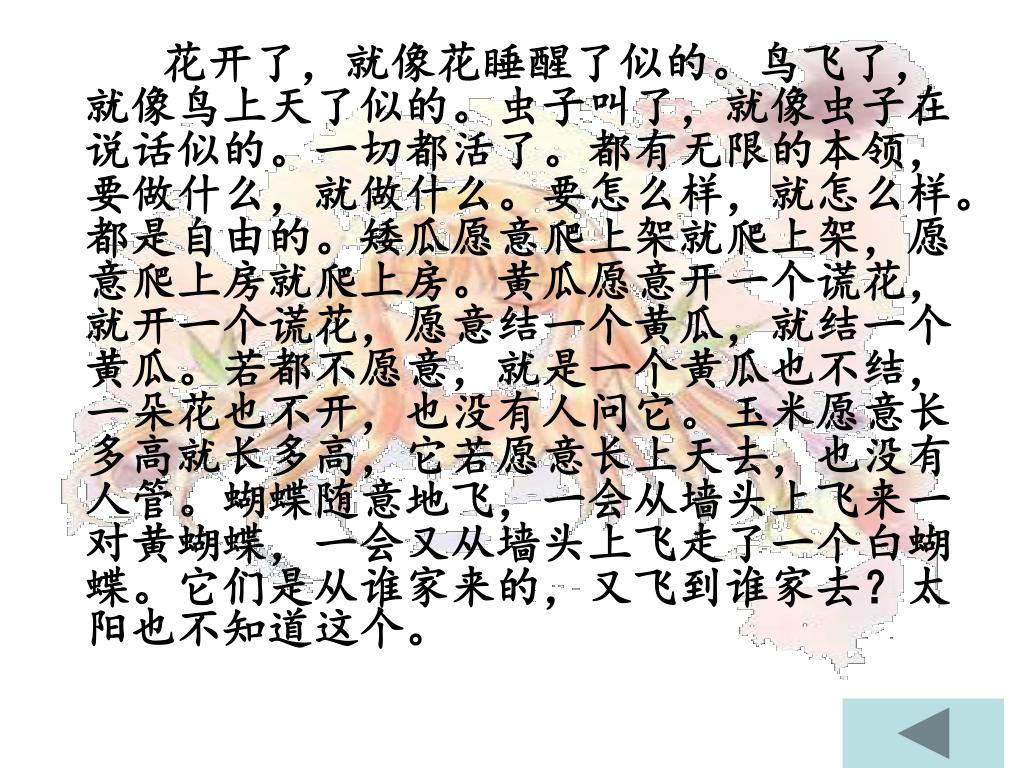 花开了，就像花睡醒了似的。鸟飞了，
就像鸟上天了似的。虫子叫了，就像虫子在
说话似的。一切都活了。都有无限的本领，
要做什么，就做什么。要怎么样，就怎么样。
都是自由的。矮瓜愿意爬上架就爬上架，愿
意爬上房就爬上房。黄瓜愿意开一个谎花，
就开一个谎花，愿意结一个黄瓜，就结一个
黄瓜。若都不愿意，就是一个黄瓜也不结，
一朵花也不开，也没有人问它。玉米愿意长
多高就长多高，它若愿意长上天去，也没有
人管。蝴蝶随意地飞，一会从墙头上飞来一
对黄蝴蝶，一会又从墙头上飞走了一个白蝴
蝶。它们是从谁家来的，又飞到谁家去？太
阳也不知道这个。